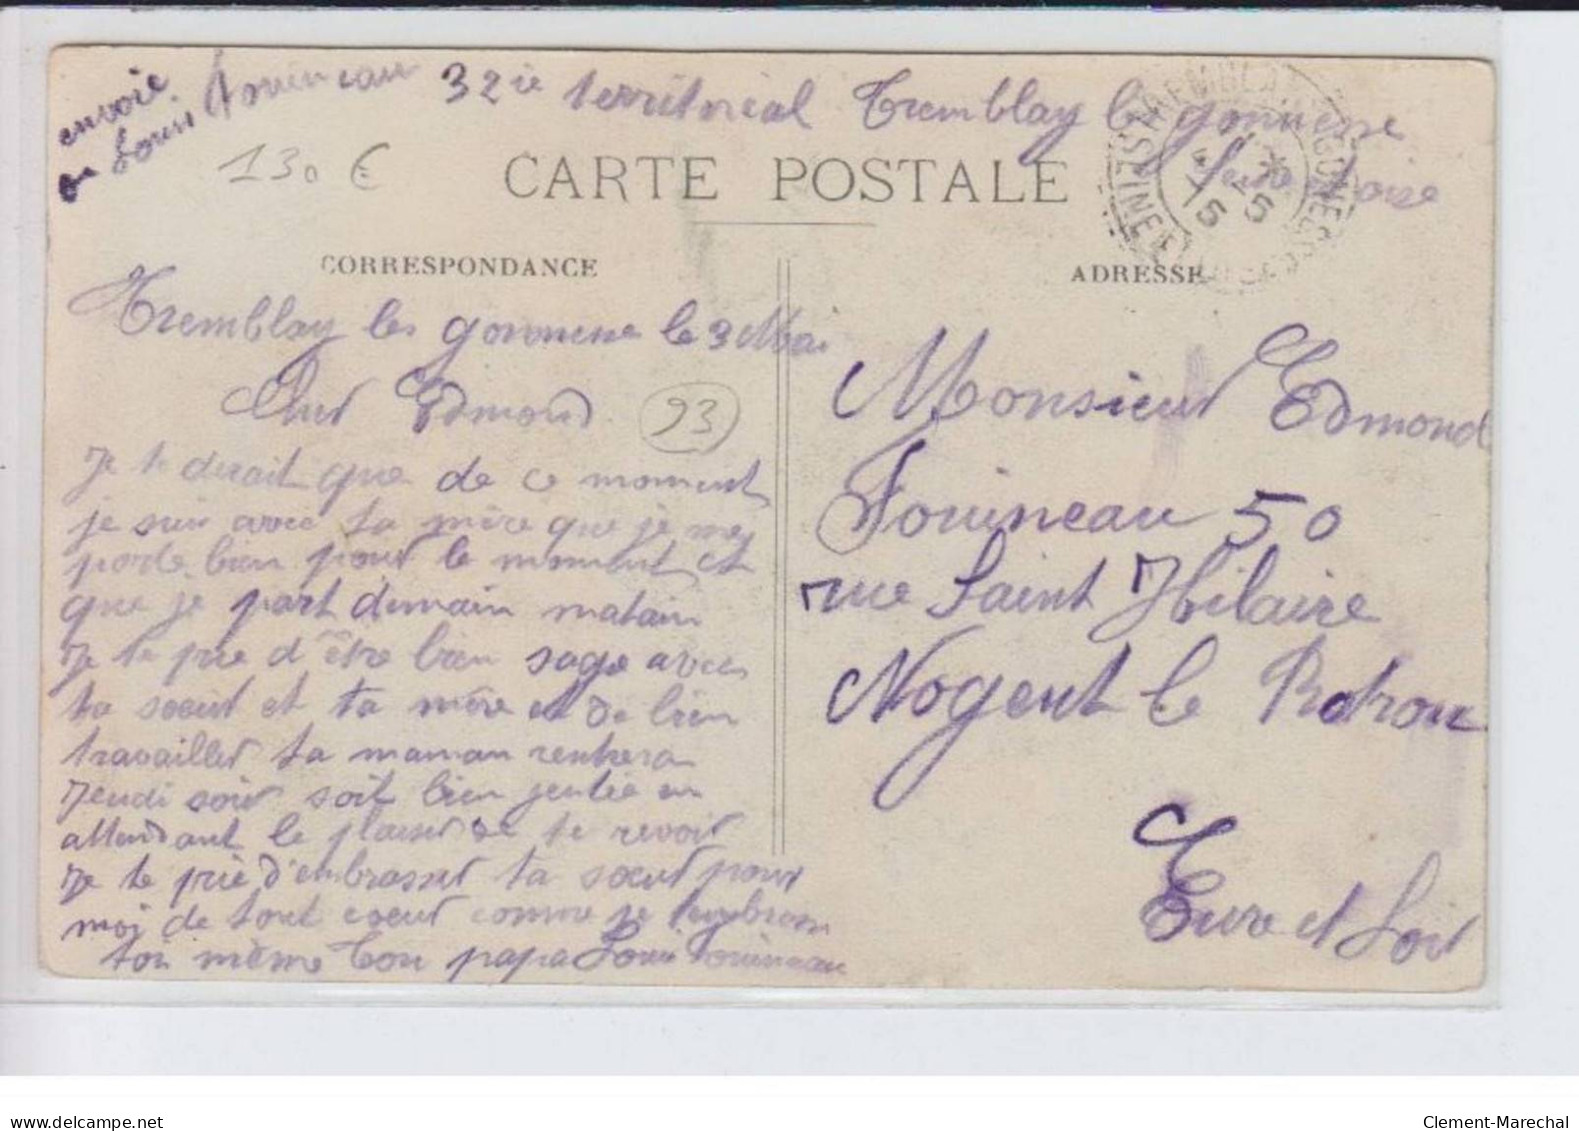 envoie Fouineau 32ie territorial Tremblay les gonnesse
ou Louis Seine et oise
130 €
CARTE POSTALE
TREMBLAY GONESSE
(SEINE
5 15
CORRESPONDANCE
ADRESSE
Tremblay les gonnesse le 3 Mai
Cher Edmond
93
Je te dirait que de ce moment
je suis avec ta mère que je me
porte bien pour le moment et
que je part demain matain
Je te prie d'être bien sage avec
ta soeur et ta mère et de bien
travailler ta maman rentrera
Jeudi soir soit bien jentie en
attendant le plaisir de te revoir
Je te prie d'embrasser ta soeur pour
moi de tout coeur comme je t'embrasse
toi même ton papa Louis Fouineau
Monsieur Edmond
Fouineau 50
rue Saint Hilaire
Nogent le Rotrou
Eure et Loir
www.delcampe.net
Clement-Marechal